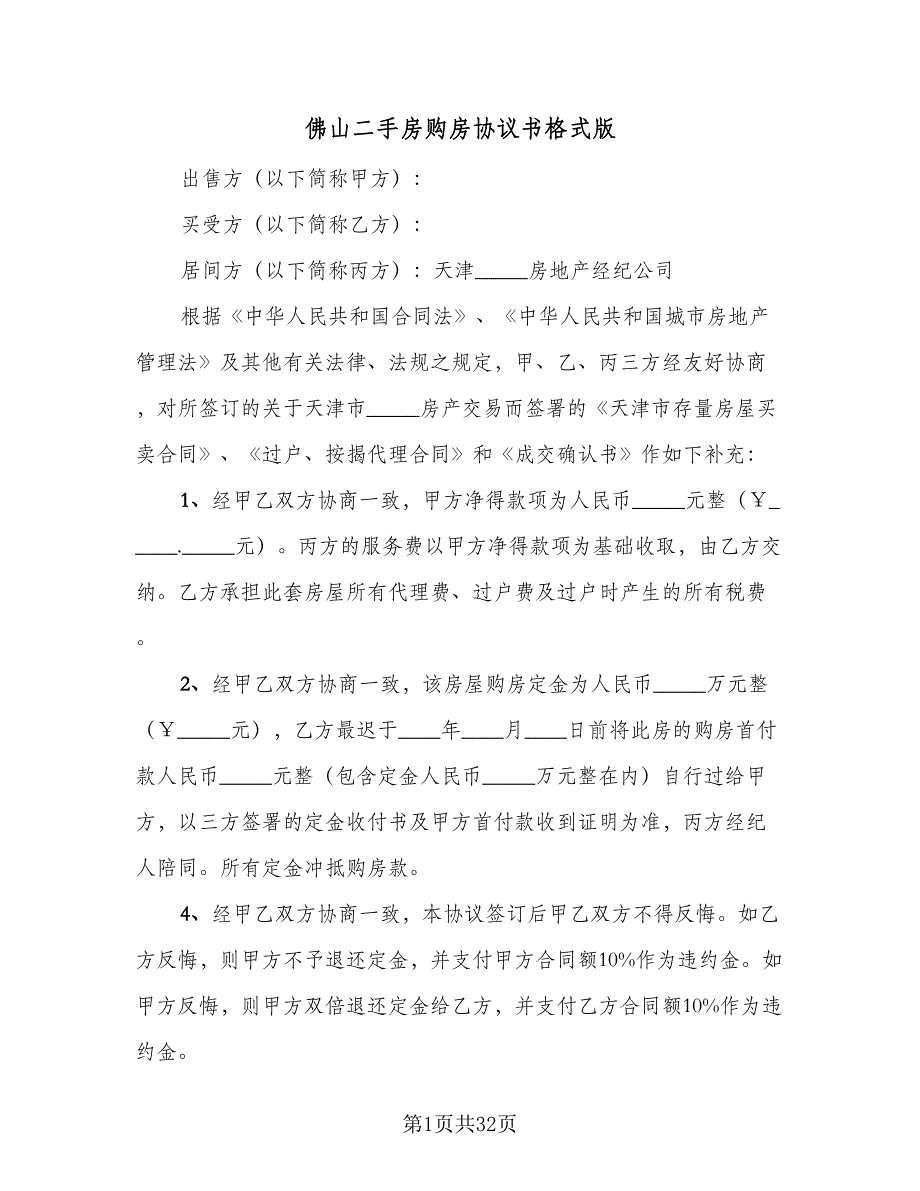 佛山二手房购房协议书格式版
出售方（以下简称甲方）：
买受方（以下简称乙方）：
居间方（以下简称丙方）：天津_____房地产经纪公司
根据《中华人民共和国合同法》、《中华人民共和国城市房地产
管理法》及其他有关法律、法规之规定，甲、乙、丙三方经友好协商
，对所签订的关于天津市_____房产交易而签署的《天津市存量房屋买
卖合同》、《过户、按揭代理合同》和《成交确认书》作如下补充：
1、经甲乙双方协商一致，甲方净得款项为人民币_____元整（￥_
____._____元）。丙方的服务费以甲方净得款项为基础收取，由乙方交
纳。乙方承担此套房屋所有代理费、过户费及过户时产生的所有税费
。
2、经甲乙双方协商一致，该房屋购房定金为人民币_____万元整
（￥_____元），乙方最迟于____年____月____日前将此房的购房首付
款人民币_____元整（包含定金人民币_____万元整在内）自行过给甲
方，以三方签署的定金收付书及甲方首付款收到证明为准，丙方经纪
人陪同。所有定金冲抵购房款。
4、经甲乙双方协商一致，本协议签订后甲乙双方不得反悔。如乙
方反悔，则甲方不予退还定金，并支付甲方合同额10%作为违约金。如
甲方反悔，则甲方双倍退还定金给乙方，并支付乙方合同额10%作为违
约金。
第1页共32页